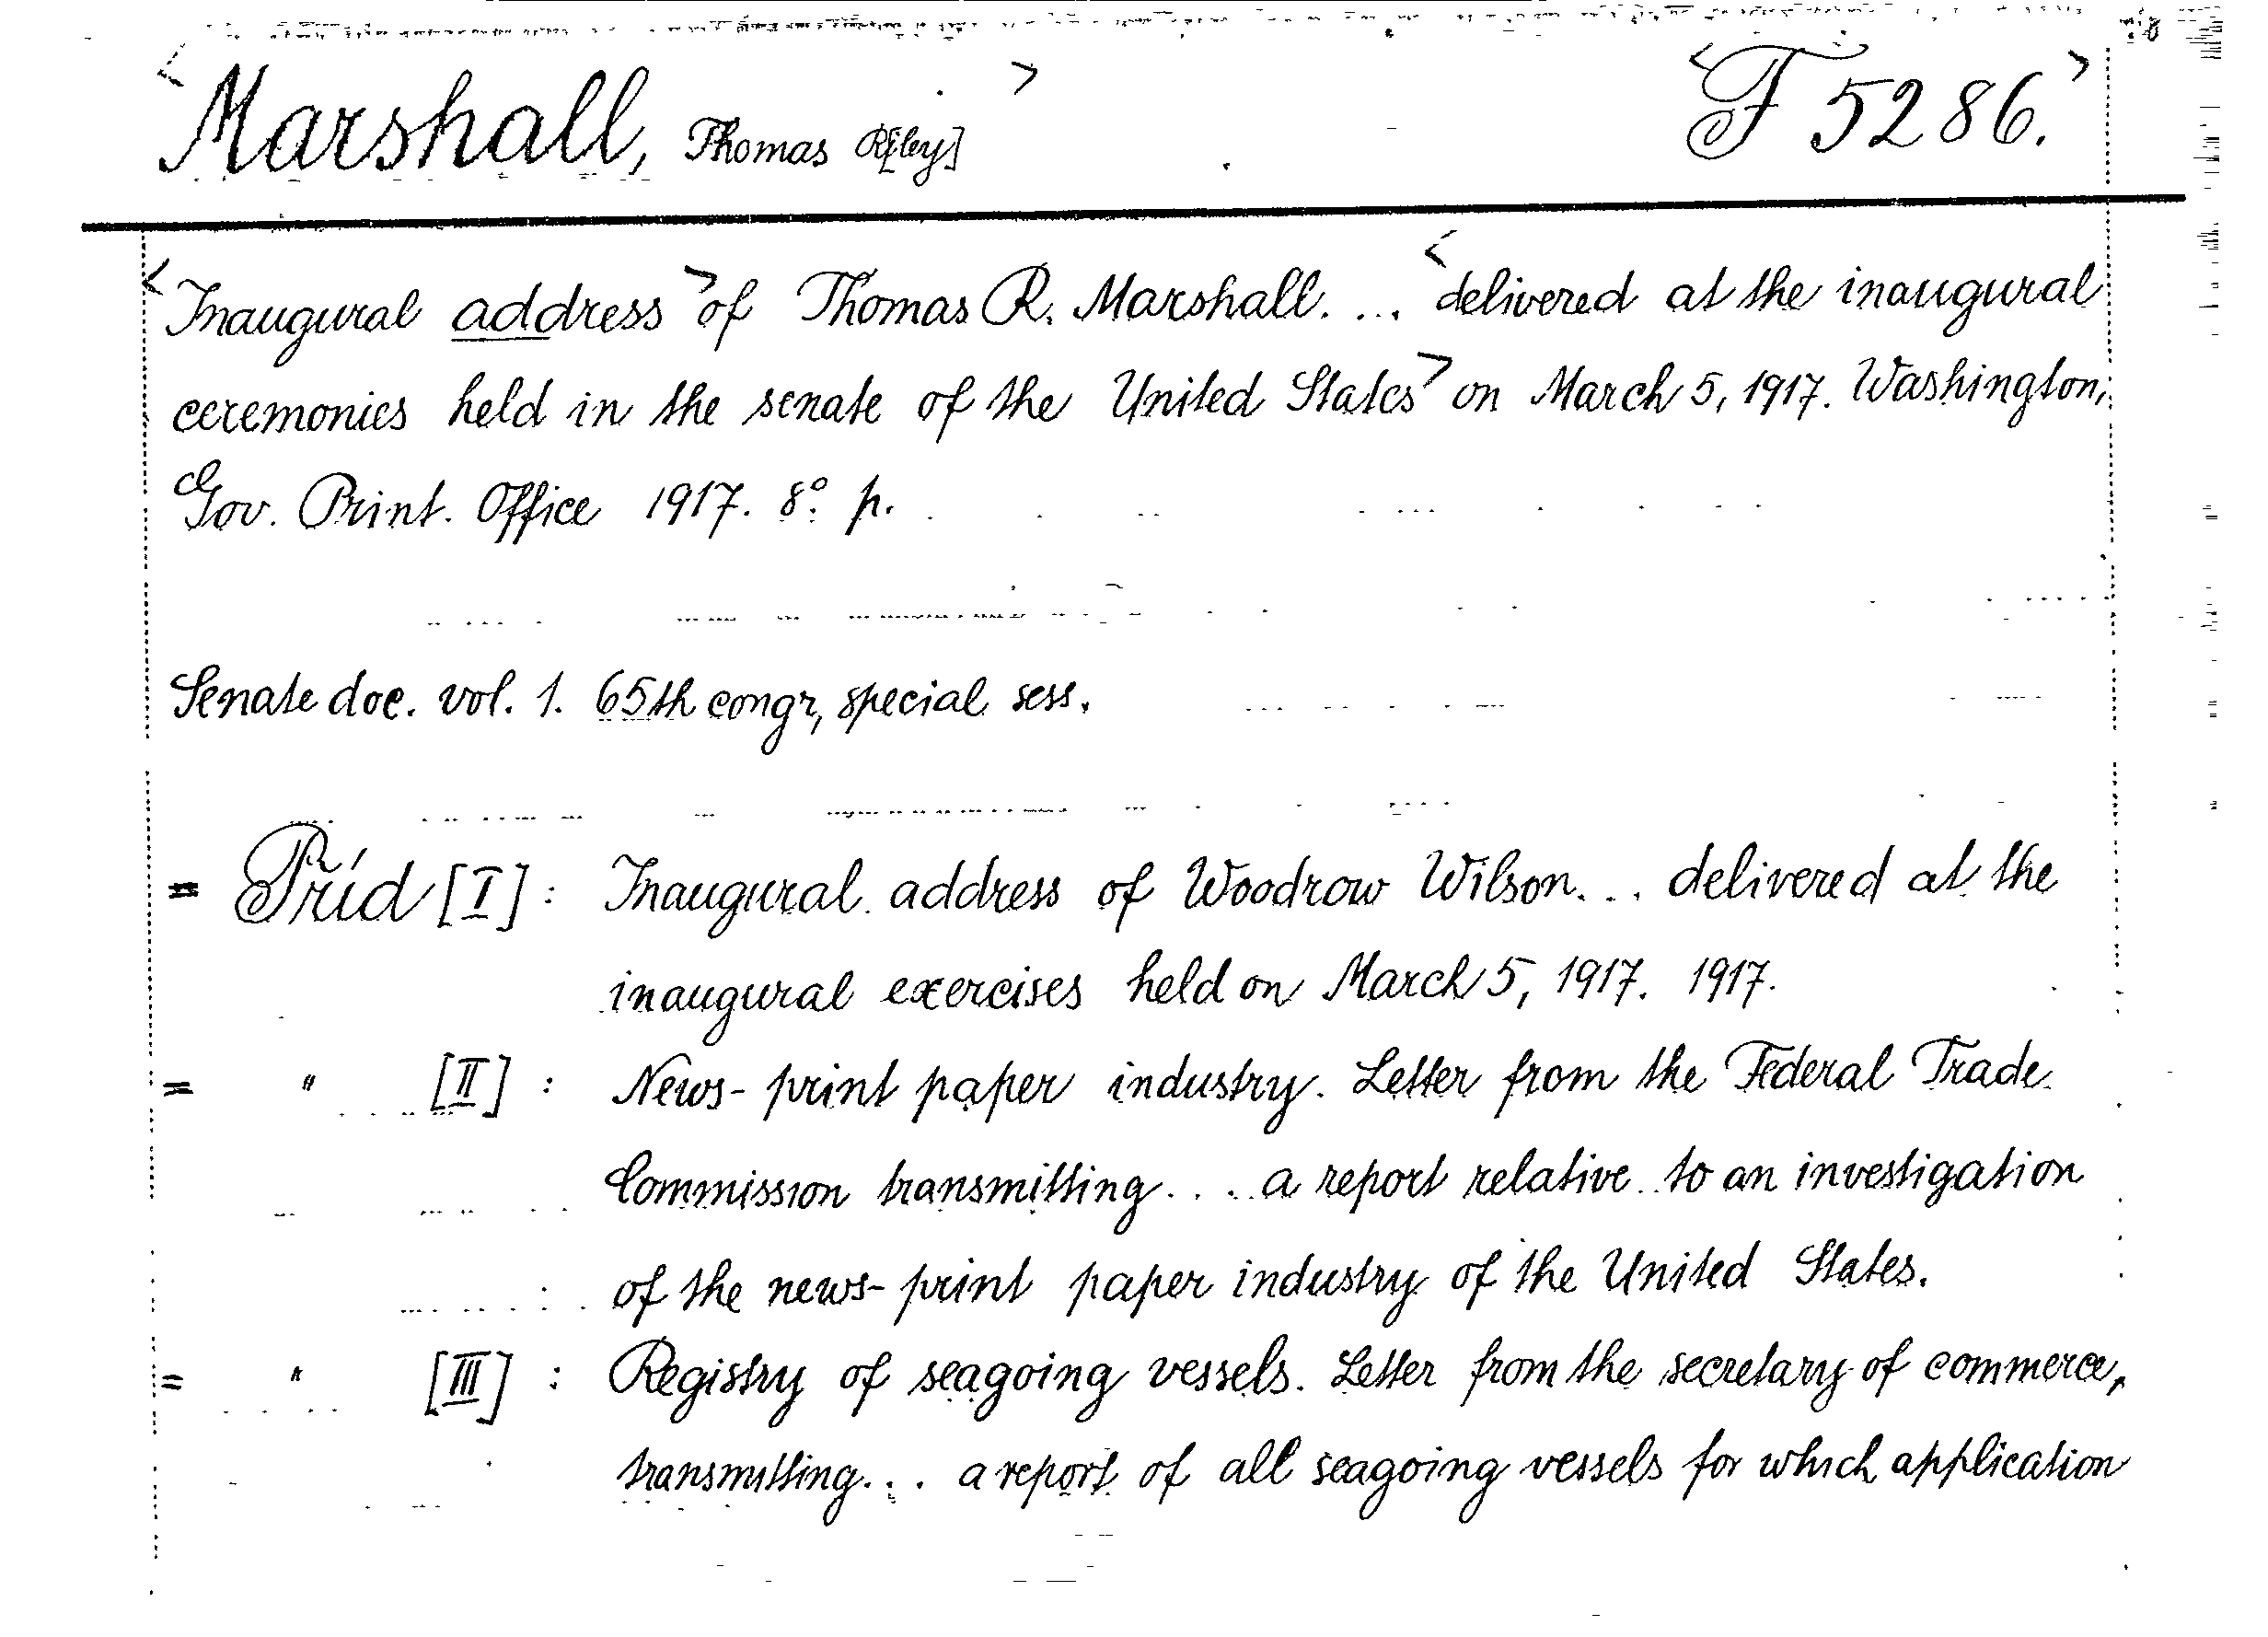 <Marshall, Thomas R[iley]> <F 5286.>
<Inaugural address> of Thomas R. Marshall. ... <delivered at the inaugural
ceremonies held in the senate of the United States> on March 5, 1917. Washington,
Gov. Print. Office 1917. 8°. p.
Senate doc. vol. 1. 65th congr, special sess.
= Příd [I]: Inaugural address of Woodrow Wilson... delivered at the
inaugural exercises held on March 5, 1917. 1917.
= " [II]: News-print paper industry. Letter from the Federal Trade
Commission transmitting.... a report relative to an investigation
of the news-print paper industry of the United States.
= " [III]: Registry of seagoing vessels. Letter from the secretary of commerce,
transmitting... a report of all seagoing vessels for which application